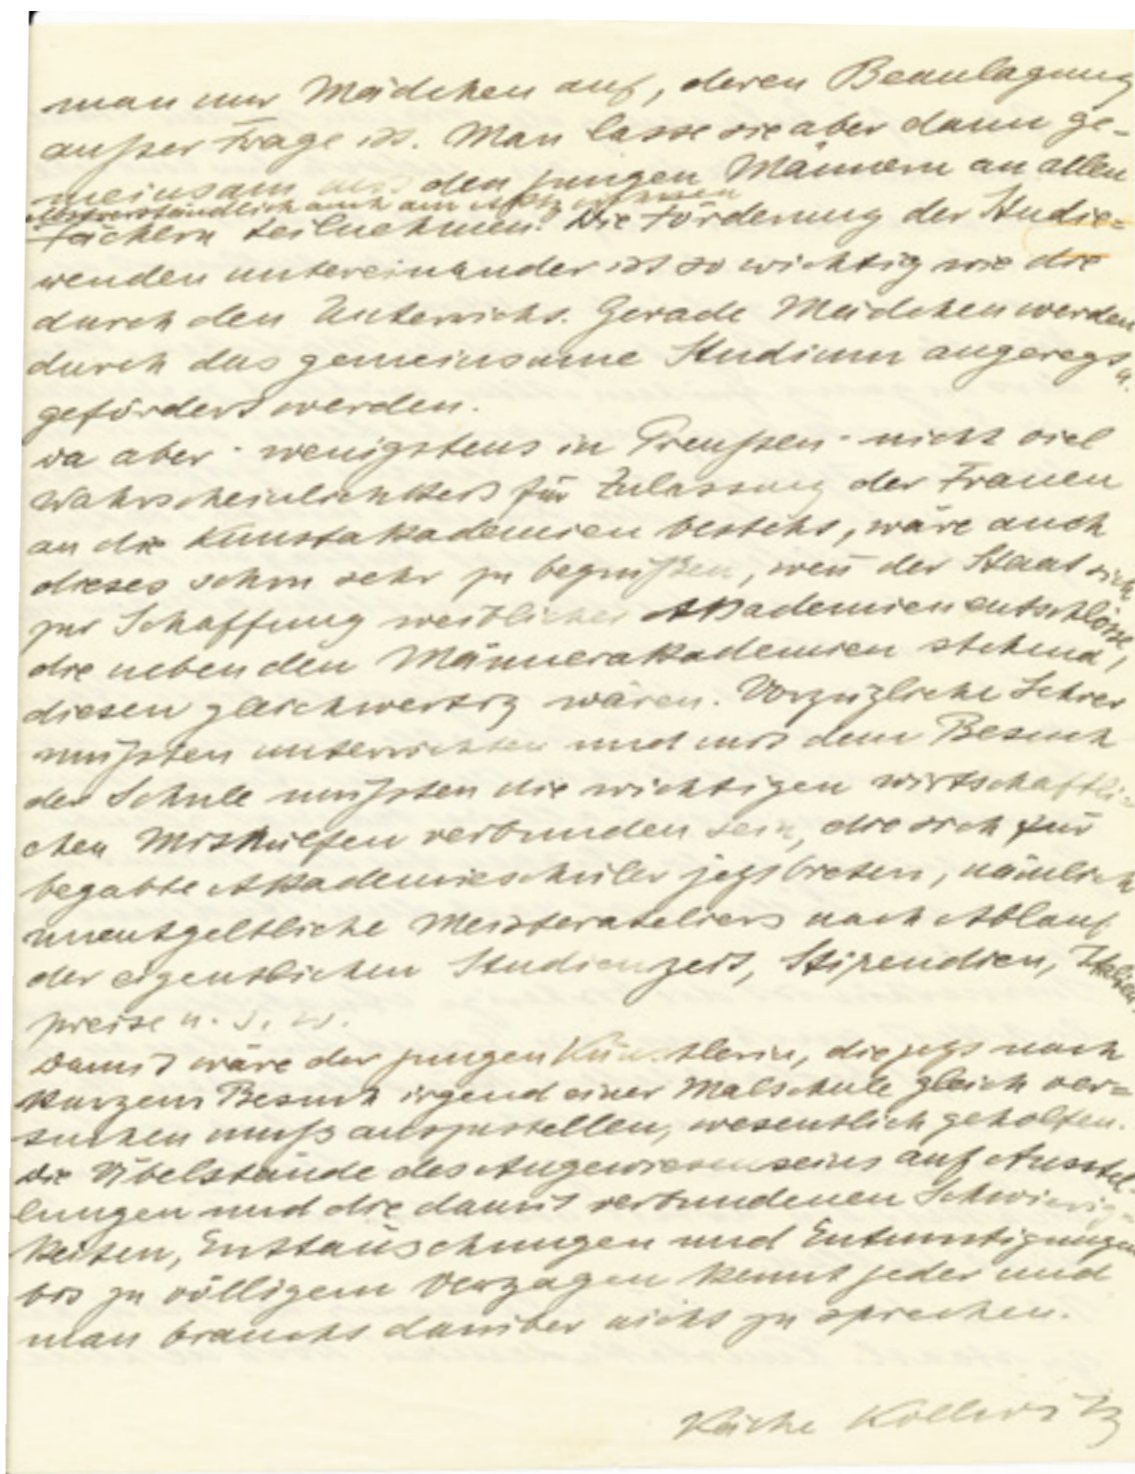 man nur Mädchen auf, deren Beanlagung
außer Frage ist. Man lasse sie aber dann ge-
meinsam mit den jungen Männern an allen
selbstverständlich auch am Aktzeichnen
Fächern teilnehmen. Die Förderung der Studie-
renden untereinander ist so wichtig wie die
durch den Unterricht. Gerade Mädchen werden
durch das gemeinsame Studium angeregt u.
gefördert werden.
Da aber - wenigstens in Preußen - nicht viel
Wahrscheinlichkeit für Zulassung der Frauen
an die Kunstakademien besteht, wäre auch
dieses schon sehr zu begrüßen, wen̄ der Staat sich
zur Schaffung weiblicher Akademien entschlösse,
die neben den Männerakademien stehend,
diesen gleichwertig wären. Vorzügliche Lehrer
müßten unterrichten und mit dem Besuch
der Schule müßten die wichtigen wirtschaftli-
chen Mithülfen verbunden sein, die sich für
begabte Akademieschüler jetzt bieten, nämlich
unentgeltliche Meisterateliers nach Ablauf
der eigentlichen Studienzeit, Stipendien, Italien-
preise u. s. w.
Damit wäre der jungen Künstlerin, die jetzt nach
kurzem Besuch irgend einer Malschule gleich ver-
suchen muß auszustellen, wesentlich geholfen.
Die Übelstände des Angewiesenseins auf Ausstel-
lungen und die damit verbundenen Schwierig-
keiten, Enttäuschungen und Entmutigungen
bis zu völligem Verzagen kennt jeder und
man braucht darüber nicht zu sprechen.
Käthe Kollwitz